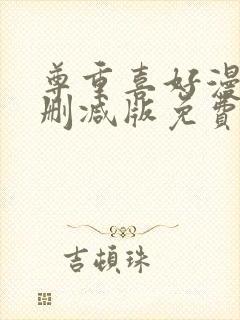 尊重喜好漫
删减版免費
吉頓珠